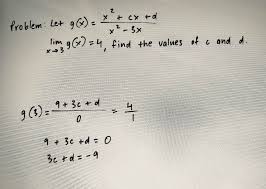 Problem: Let g(x) = (x² + cx + d)/(x² - 3x)
lim x→3 g(x) = 4, find the values of c and d.
g(3) = (9 + 3c + d)/0 = 4/1
9 + 3c + d = 0
3c + d = -9